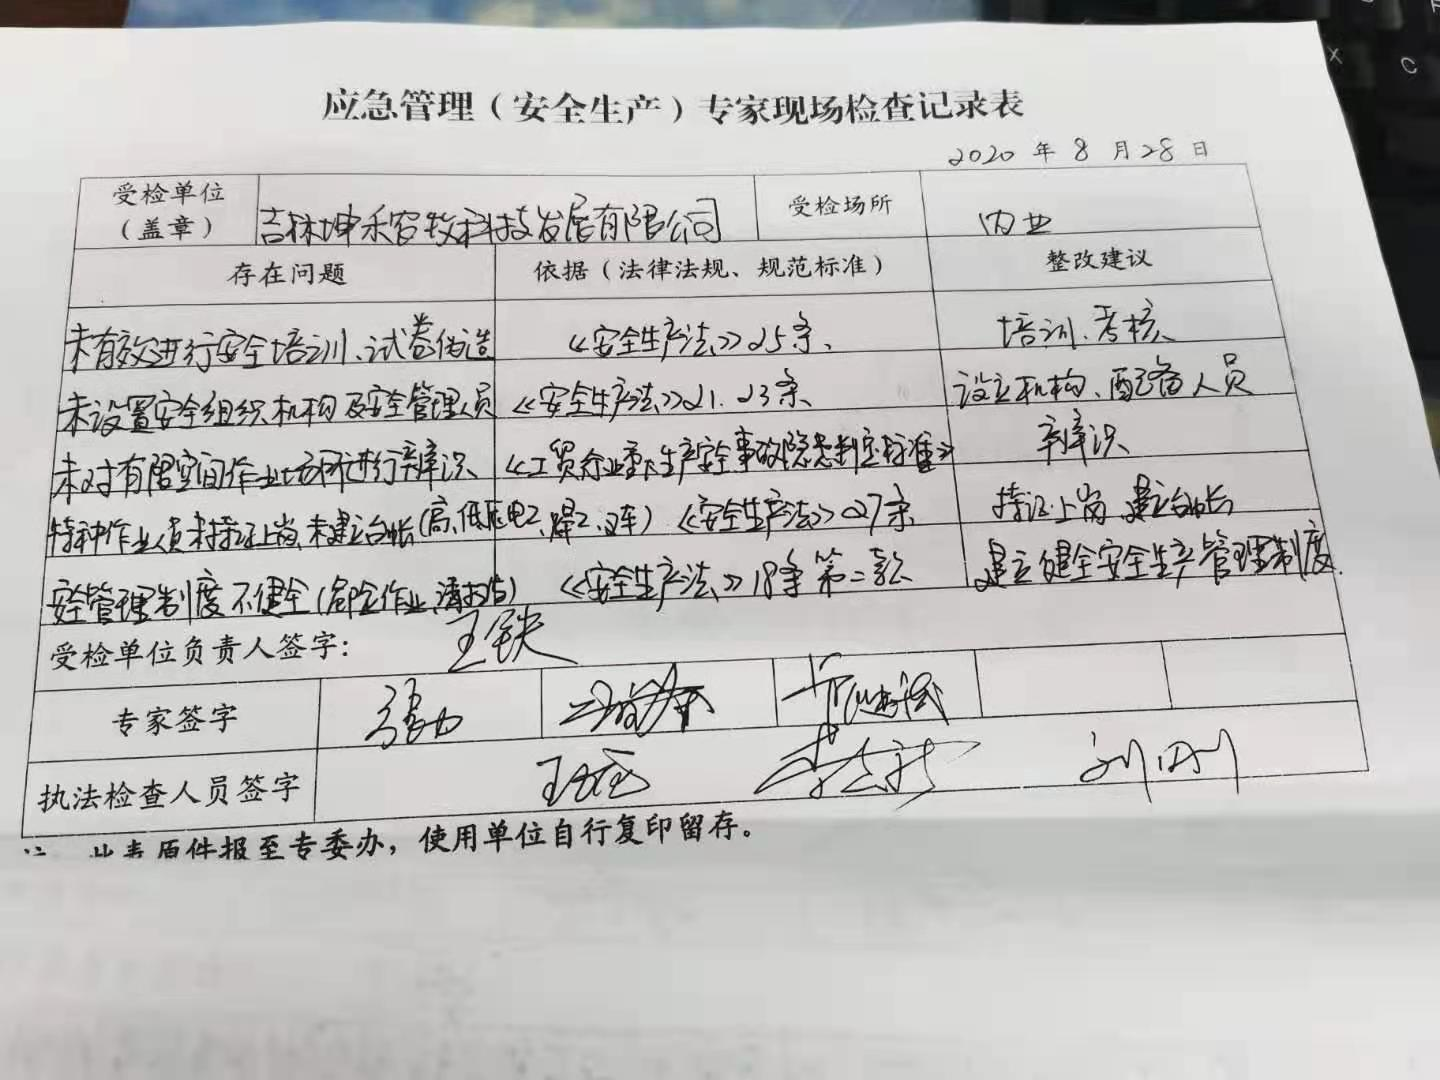 应急管理（安全生产）专家现场检查记录表
2020 年 8 月 28 日
受检单位（盖章） 吉林坤禾农牧科技发展有限公司 受检场所 内业
存在问题 依据（法律法规、规范标准） 整改建议
未有效进行安全培训、试卷伪造 《安全生产法》25条、 培训、考核、
未设置安全组织机构及安全管理人员 《安全生产法》21、23条 设立机构、配备人员
未对有限空间作业场所进行辨识 《工贸行业重大生产安全事故隐患判定标准》 辨识
特种作业人员未持证上岗、未建立台帐(高、低压电工、焊工、叉车) 《安全生产法》27条 持证上岗、建立台帐
安全管理制度不健全( 作业、清扫 ) 《安全生产法》18条第二款 建立健全安全生产管理制度.
受检单位负责人签字： 王铁
专家签字 张力
执法检查人员签字
此表原件报至专委办，使用单位自行复印留存。